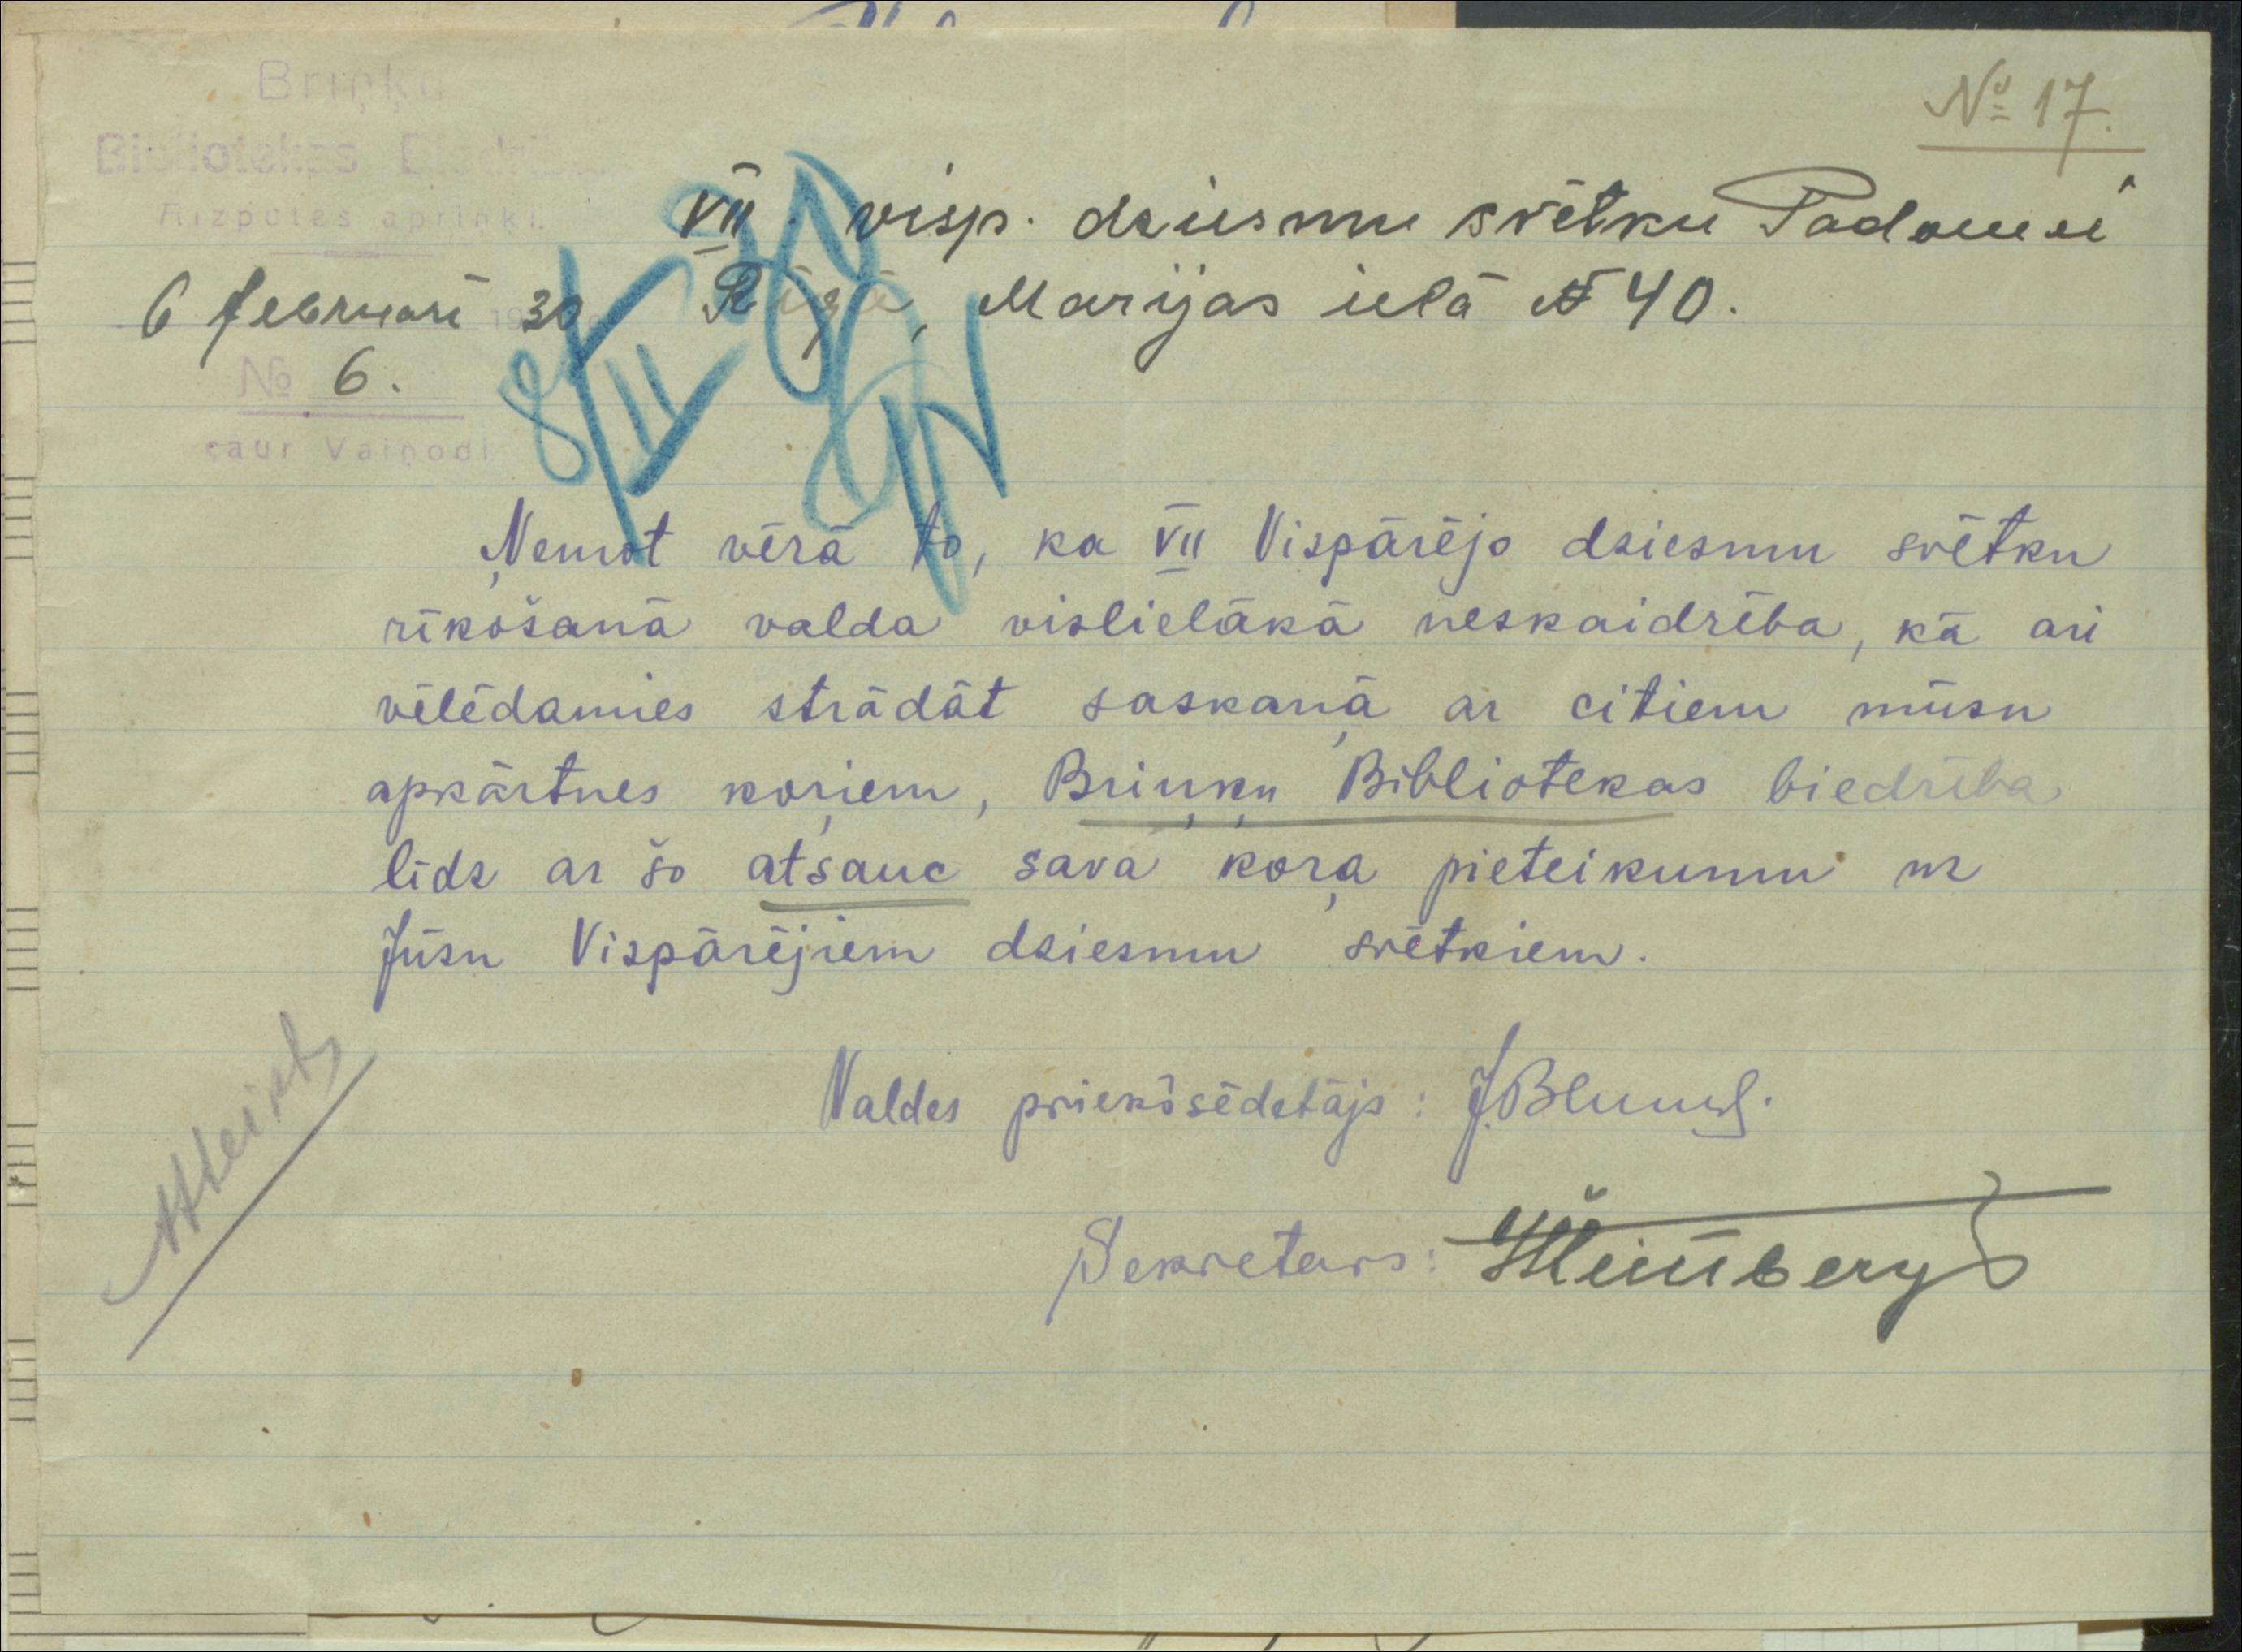 № 17.
Briņķu
Bibliotekas Biedrība
Aizputes apriņķī.
VII. visp. dziesmu svētku Padomei
6 februarī 30
Rīgā, Marijas ielā № 40.
№ 6.
caur Vaiņodi
8/II 30
Ņemot vērā to, ka VII Vispārējo dziesmu svētku
rīkošanā valda vislielākā neskaidrība, kā ari
vēlēdamies strādāt saskaņā ar citiem mūsu
apkārtnes koŗiem, Briņķu Bibliotekas biedrība
līdz ar šo atsauc sava koŗa pieteikumu uz
Jūsu Vispārējiem dziesmu svētkiem.
Valdes priekšsēdetājs: J. Blums.
Atteikts
Sekretars: